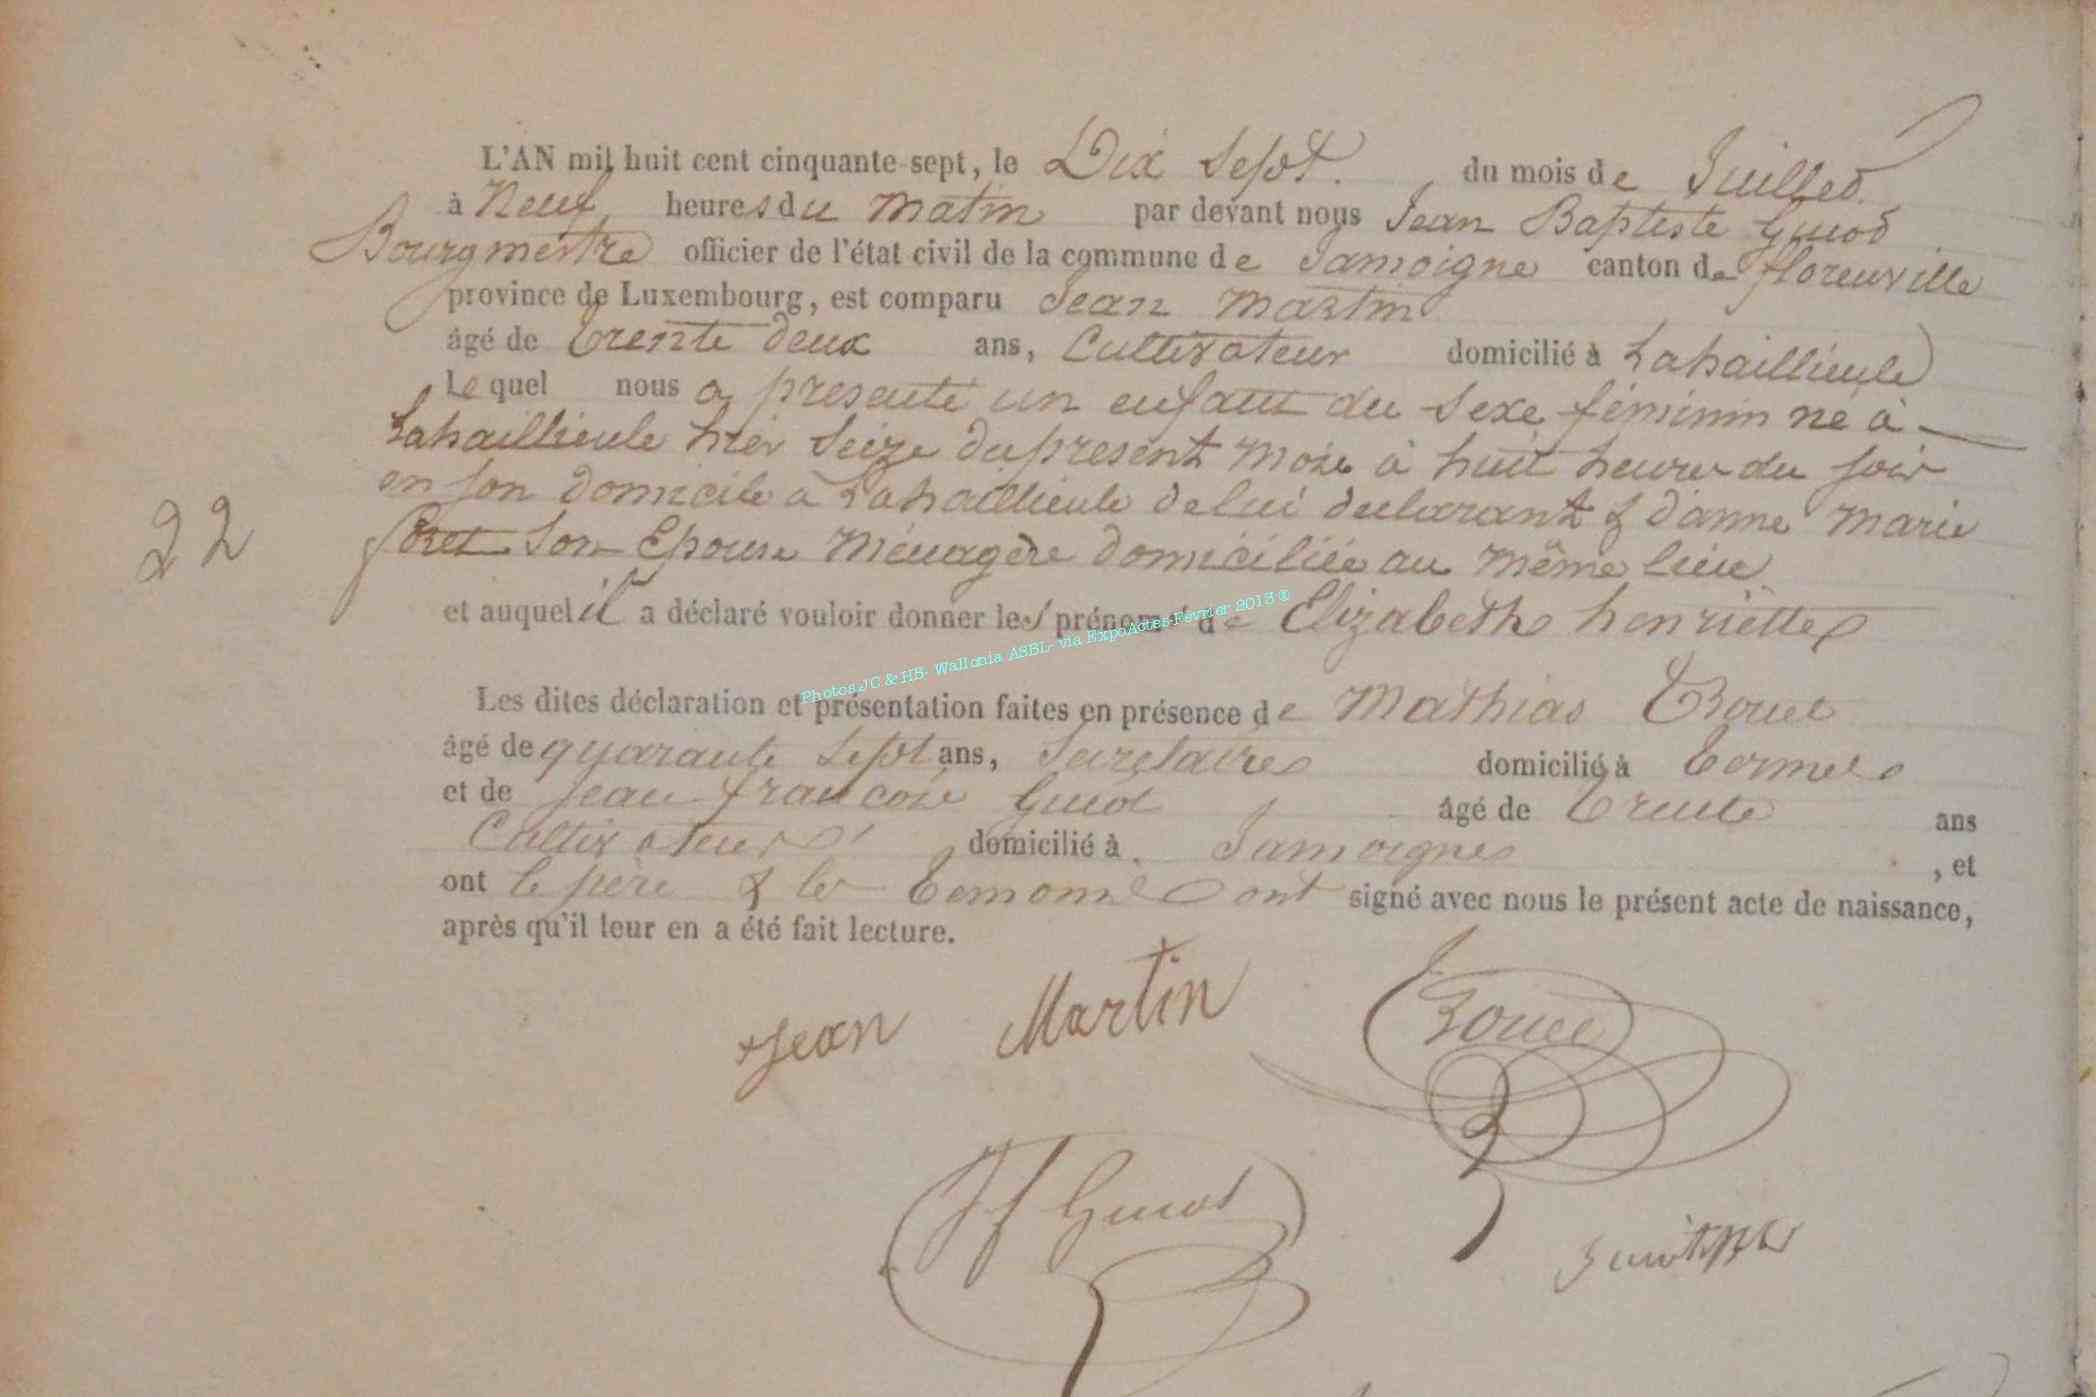 L'AN mil huit cent cinquante-sept, le Dix Sept. du mois de Juillet
à Neuf heures du matin par devant nous Jean Baptiste Guiot
Bourgmestre officier de l'état civil de la commune de Jamoigne canton de florenville
province de Luxembourg, est comparu Jean Martin
âgé de trente deux ans, Cultivateur domicilié à Lahaillieule
Lequel nous a presenté un enfant du Sexe féminin né à
Lahaillieule hier Seize du present mois à huit heures du soir
en son domicile à Lahaillieule de lui declarant & d'anne marie
foret son Epouse Ménagère domiciliée au même lieu
22
et auquel il a déclaré vouloir donner les prénoms de Elizabeth henriette
Photos JC & HB- Wallonia ASBL- via ExpoActes-Février 2013 ®
Les dites déclaration et présentation faites en présence de Mathias
âgé de quarante Sept ans, Secretaire domicilié à Termes
et de jean françois Guiot âgé de trente ans
Cultivateur domicilié à Jamoigne , et
ont le père & les temoins ont signé avec nous le présent acte de naissance,
après qu'il leur en a été fait lecture.
Jean Martin
Jf Guiot